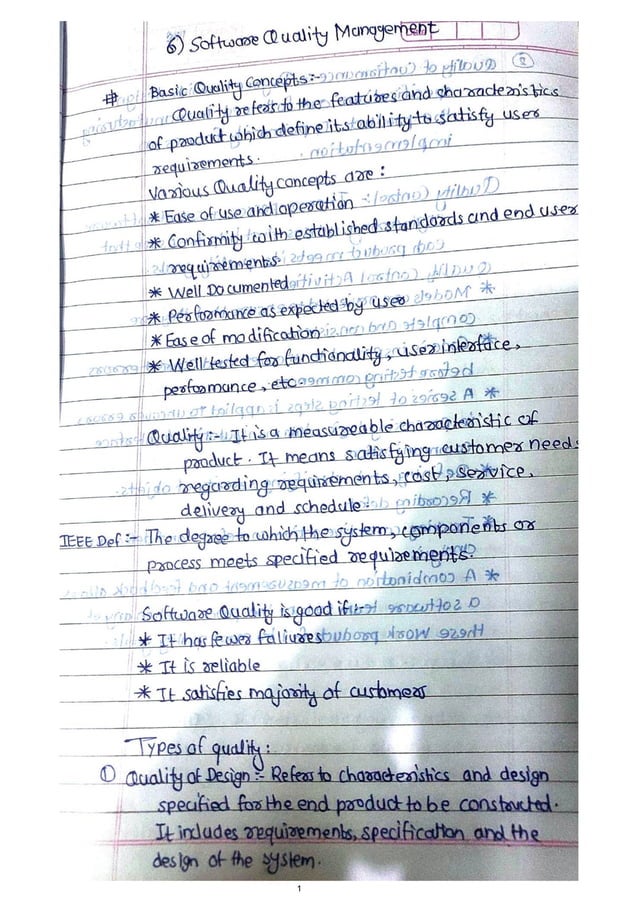 6) Software Quality Management
# Basic Quality Concepts:-
Quality refers to the features and characteristics
of product which define its ability to satisfy user
requirements.
Various Quality concepts are :
* Ease of use and operation
* Confirmity with established standards and end user
requirements
* Well Documented
* Performance as expected by user
* Ease of modification
* Well tested for functionality, user interface,
performance, etc
Quality :- It is a measureable characteristic of
product. It means satisfying customer needs
regarding requirements, cost, service,
delivery and schedule.
IEEE Def :- The degree to which the system, components or
process meets specified requirements.
Software Quality is good if :-
* It has fewer faliures
* It is reliable
* It satisfies majority of customers
Types of quality :
① Quality of Design :- Refers to characteristics and design
specified for the end product to be constructed.
It includes requirements, specification and the
design of the system.
1